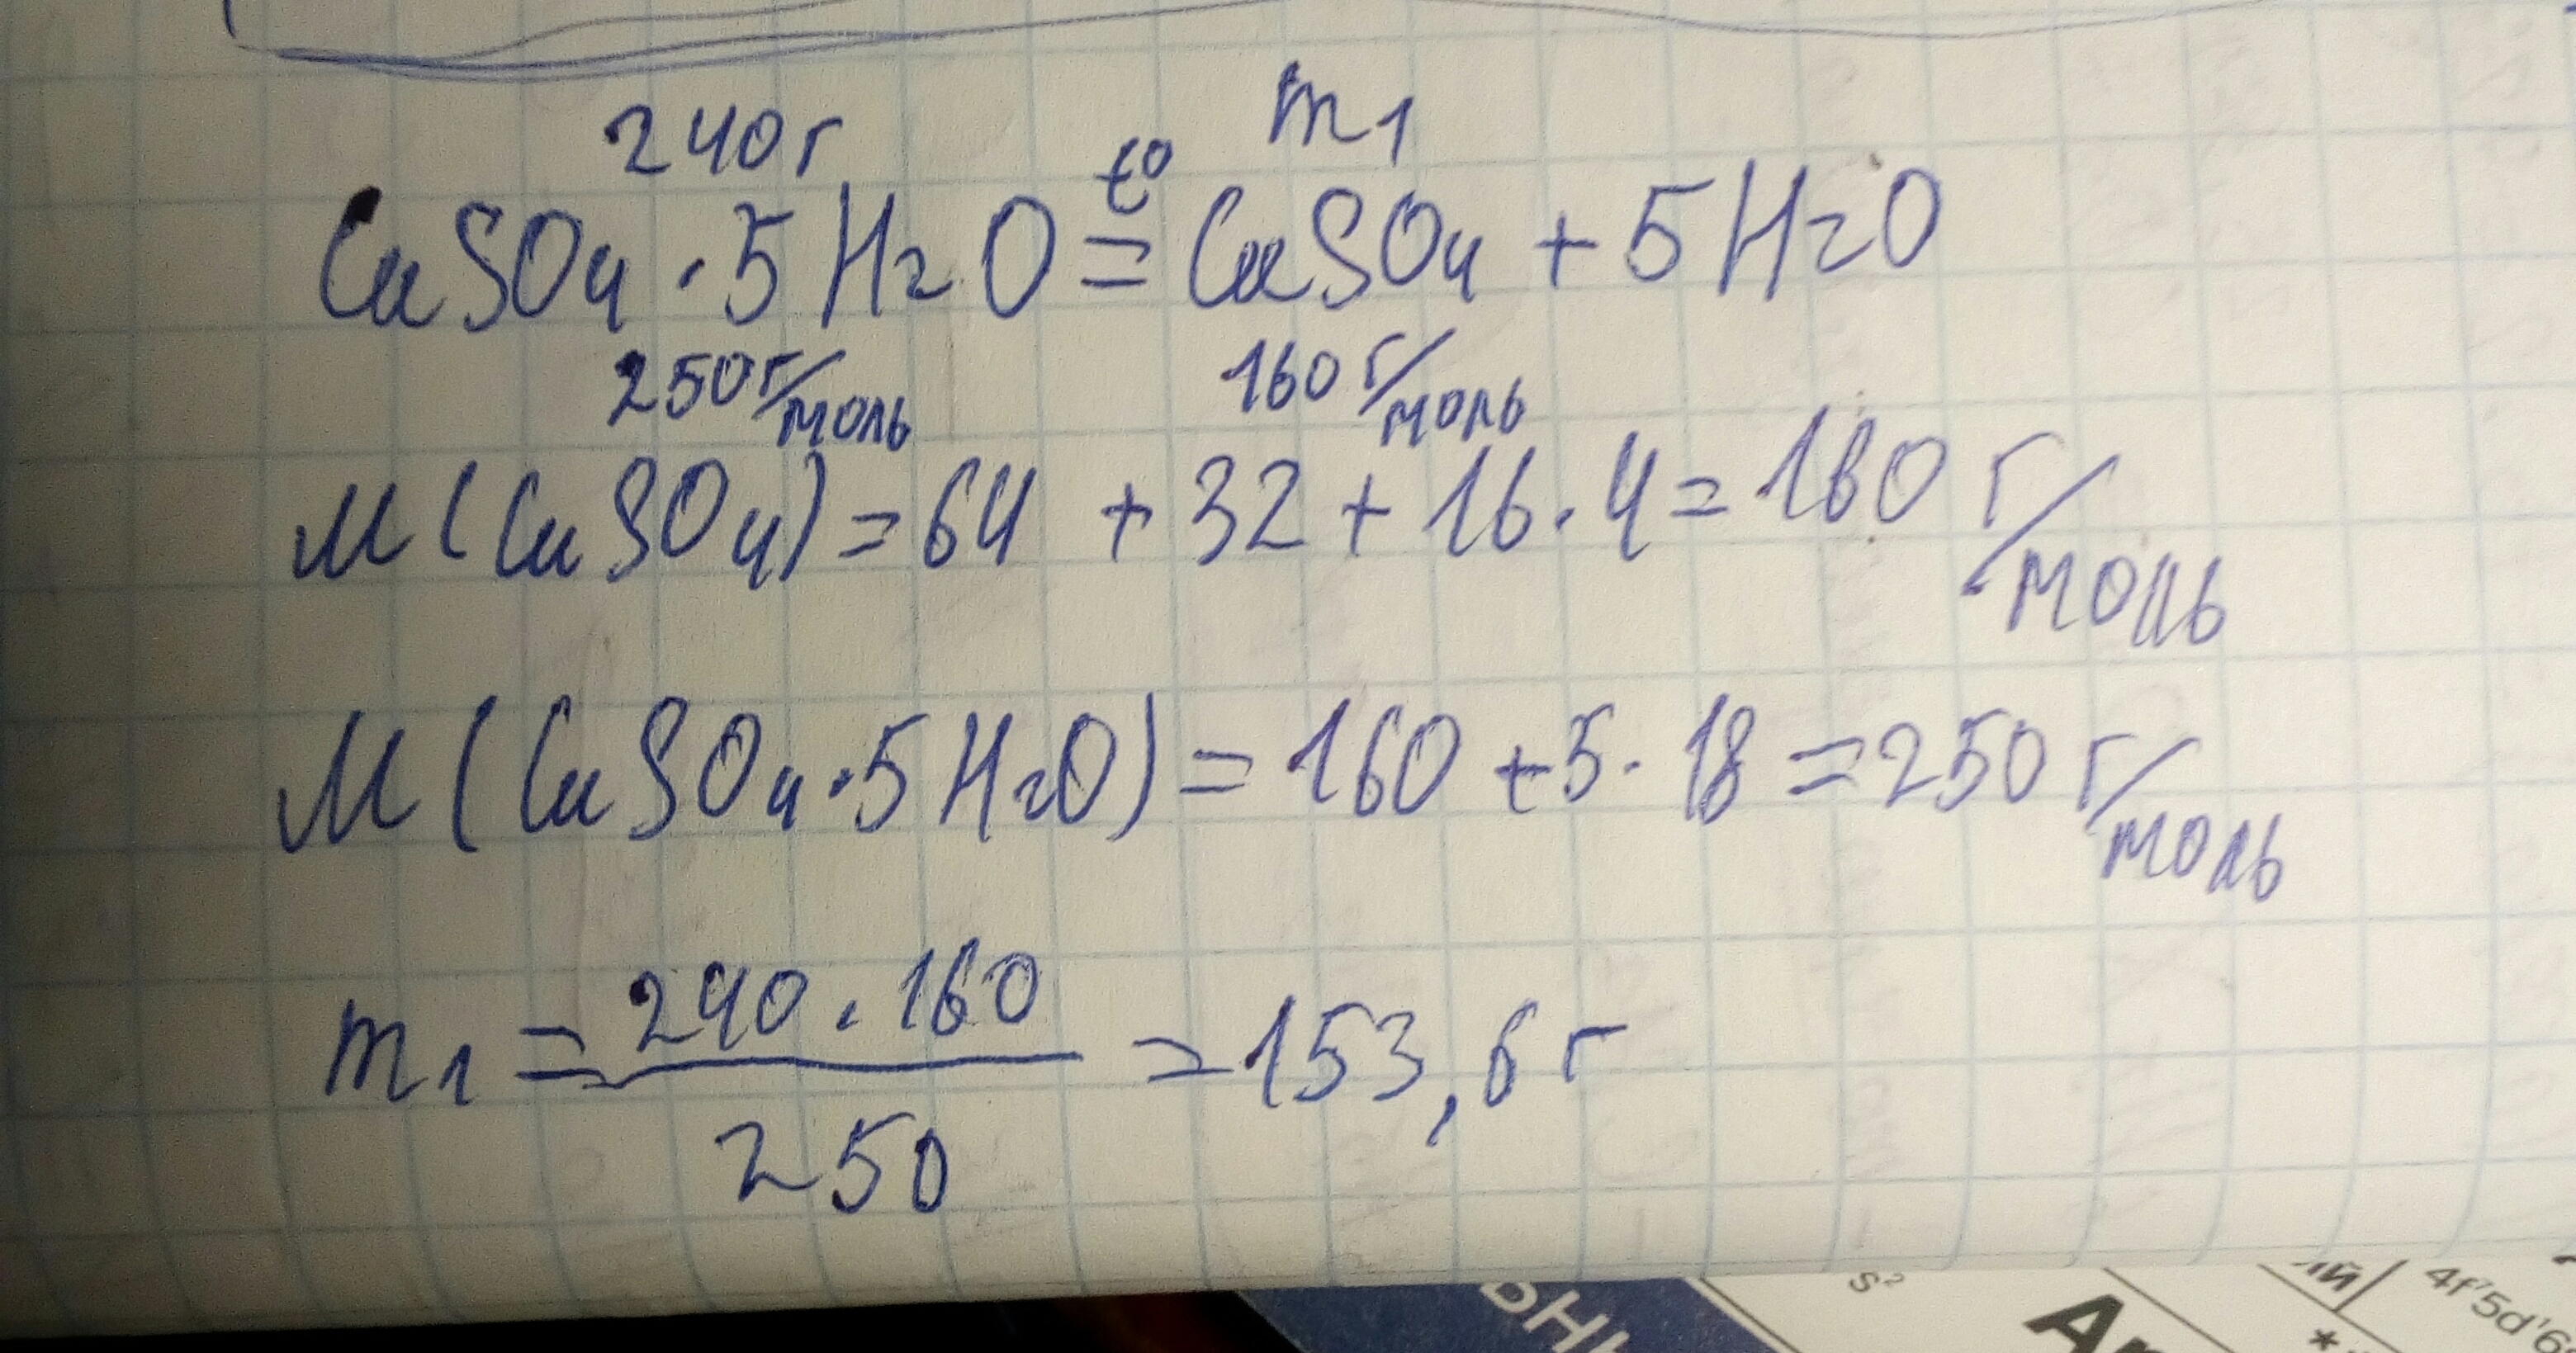 240г m1
CuSO4 · 5H2O t° = CuSO4 + 5H2O
250 г/моль 160 г/моль
M(CuSO4) = 64 + 32 + 16 · 4 = 160 г/моль
M(CuSO4 · 5H2O) = 160 + 5 · 18 = 250 г/моль
m1 = 240 · 160 / 250 = 153,6 г
ЬНЫ s² 4f¹⁴5d¹6